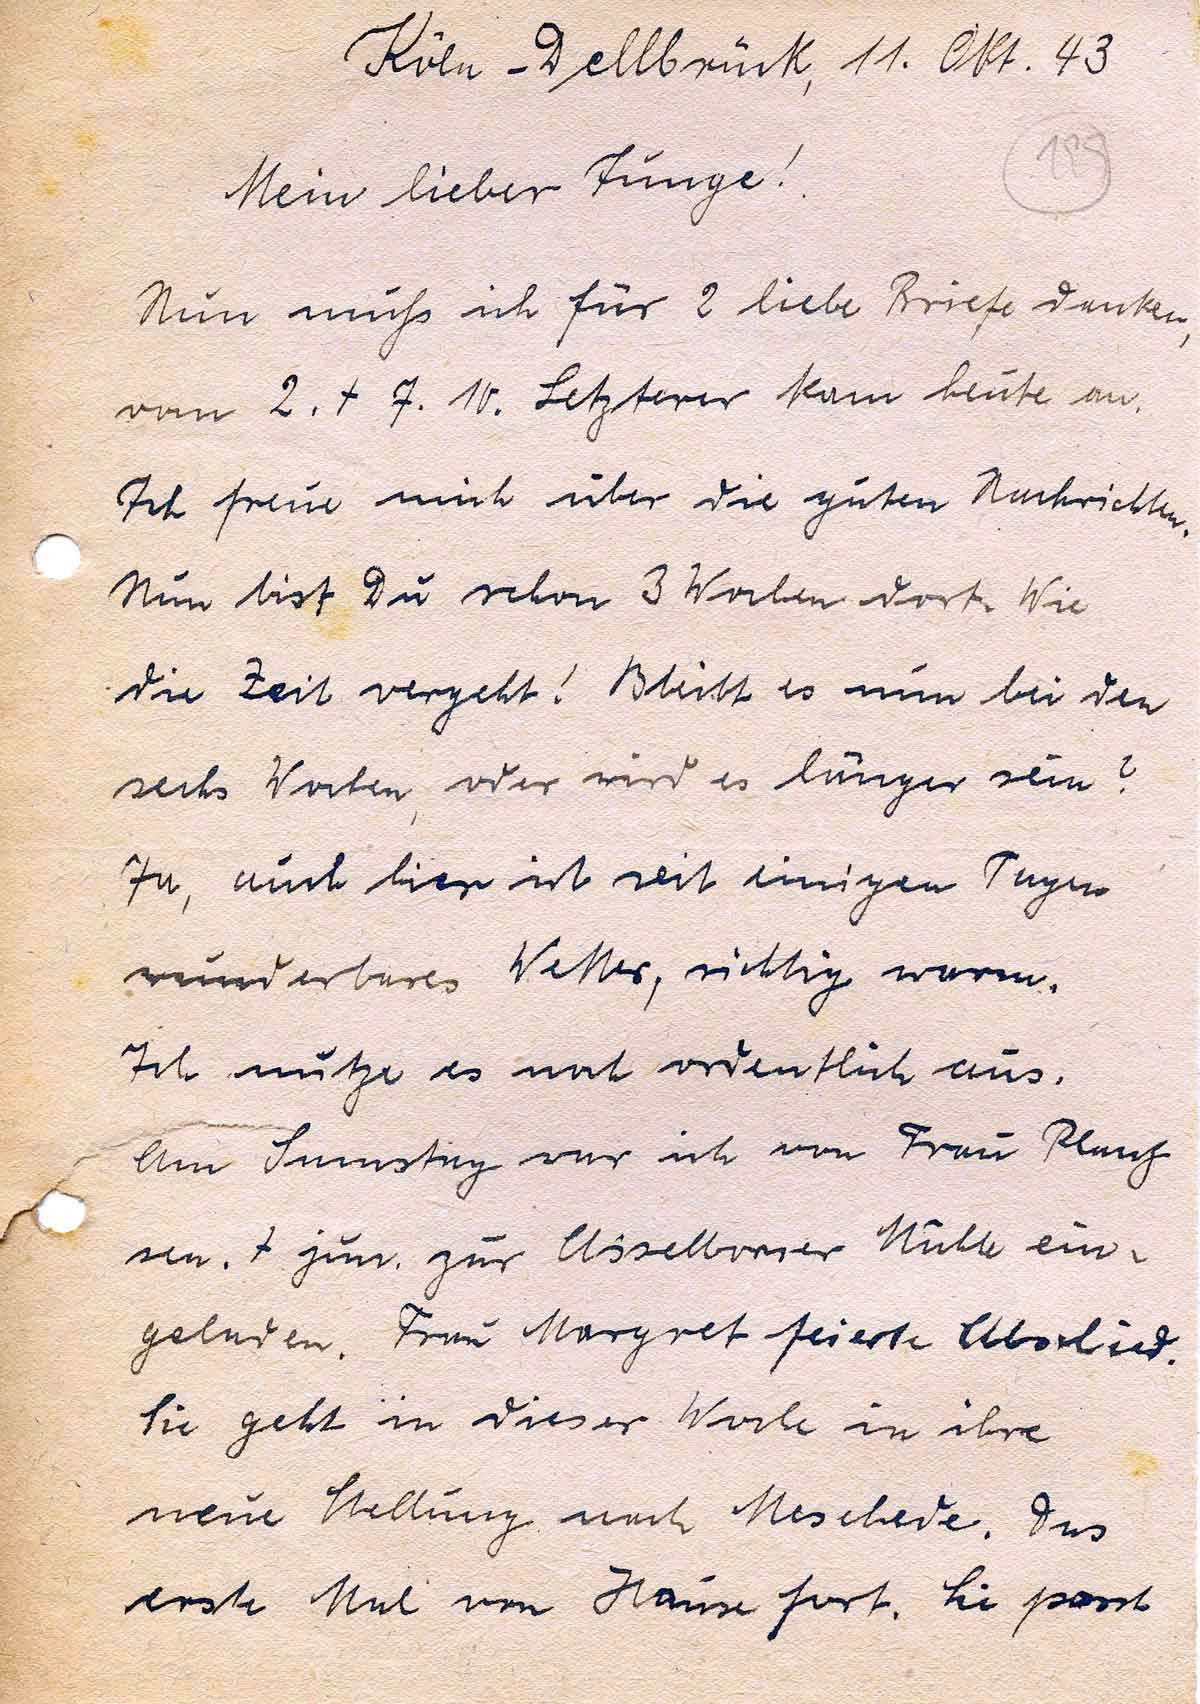 Köln-Dellbrück, 11. Okt. 43
Mein lieber Junge!
Nun muß ich für 2 liebe Briefe danken,
vom 2. + 7. 10. Letzterer kam heute an.
Ich freue mich über die guten Nachrichten.
Nun bist Du schon 3 Wochen dort. Wie
die Zeit vergeht! Bleibt es nun bei den
sechs Wochen, oder wird es länger sein?
Ja, auch hier ist seit einigen Tagen
wunderbares Wetter, richtig warm.
Ich nutze es noch ordentlich aus.
Am Samstag war ich von Frau
sen. + jun. zur Isselborner Mühle ein-
geladen. Frau Margret feierte Abschied.
Sie geht in dieser Woche in ihre
neue Stellung nach Meschede. Das
erste Mal von Hause fort. Sie passt